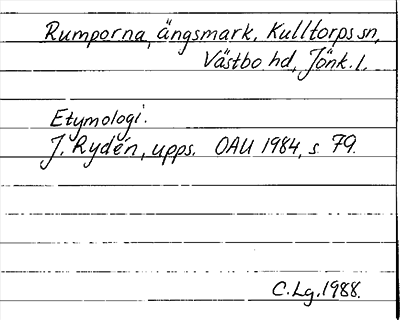 Rumporna, ängsmark, Kulltorps sn,
Västbo hd, Jönk. l.
Etymologi.
J. Rydén, upps. OAU 1984, s. 79.
C. Lg. 1988.